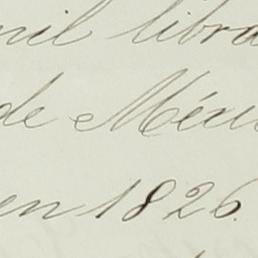 mil libra
de Méxi
en 1826.